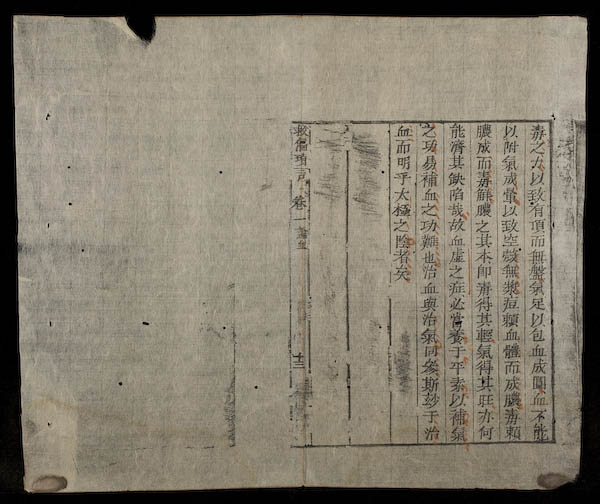 毒之力以致有頂而無盤氣足以包血成圓血不能
以附氣成暈以致空殼無漿痘賴血體而成膿毒賴
膿成而毒解膿之其本即毒得其輕氣得其旺亦何
能濟其缺陷哉故血虛之症必當養于平素以補氣
之功易補血之功難也治血與治氣同參斯玅于治
血而明乎太極之陰者矣
救偏瑣言 卷一 論血 十三